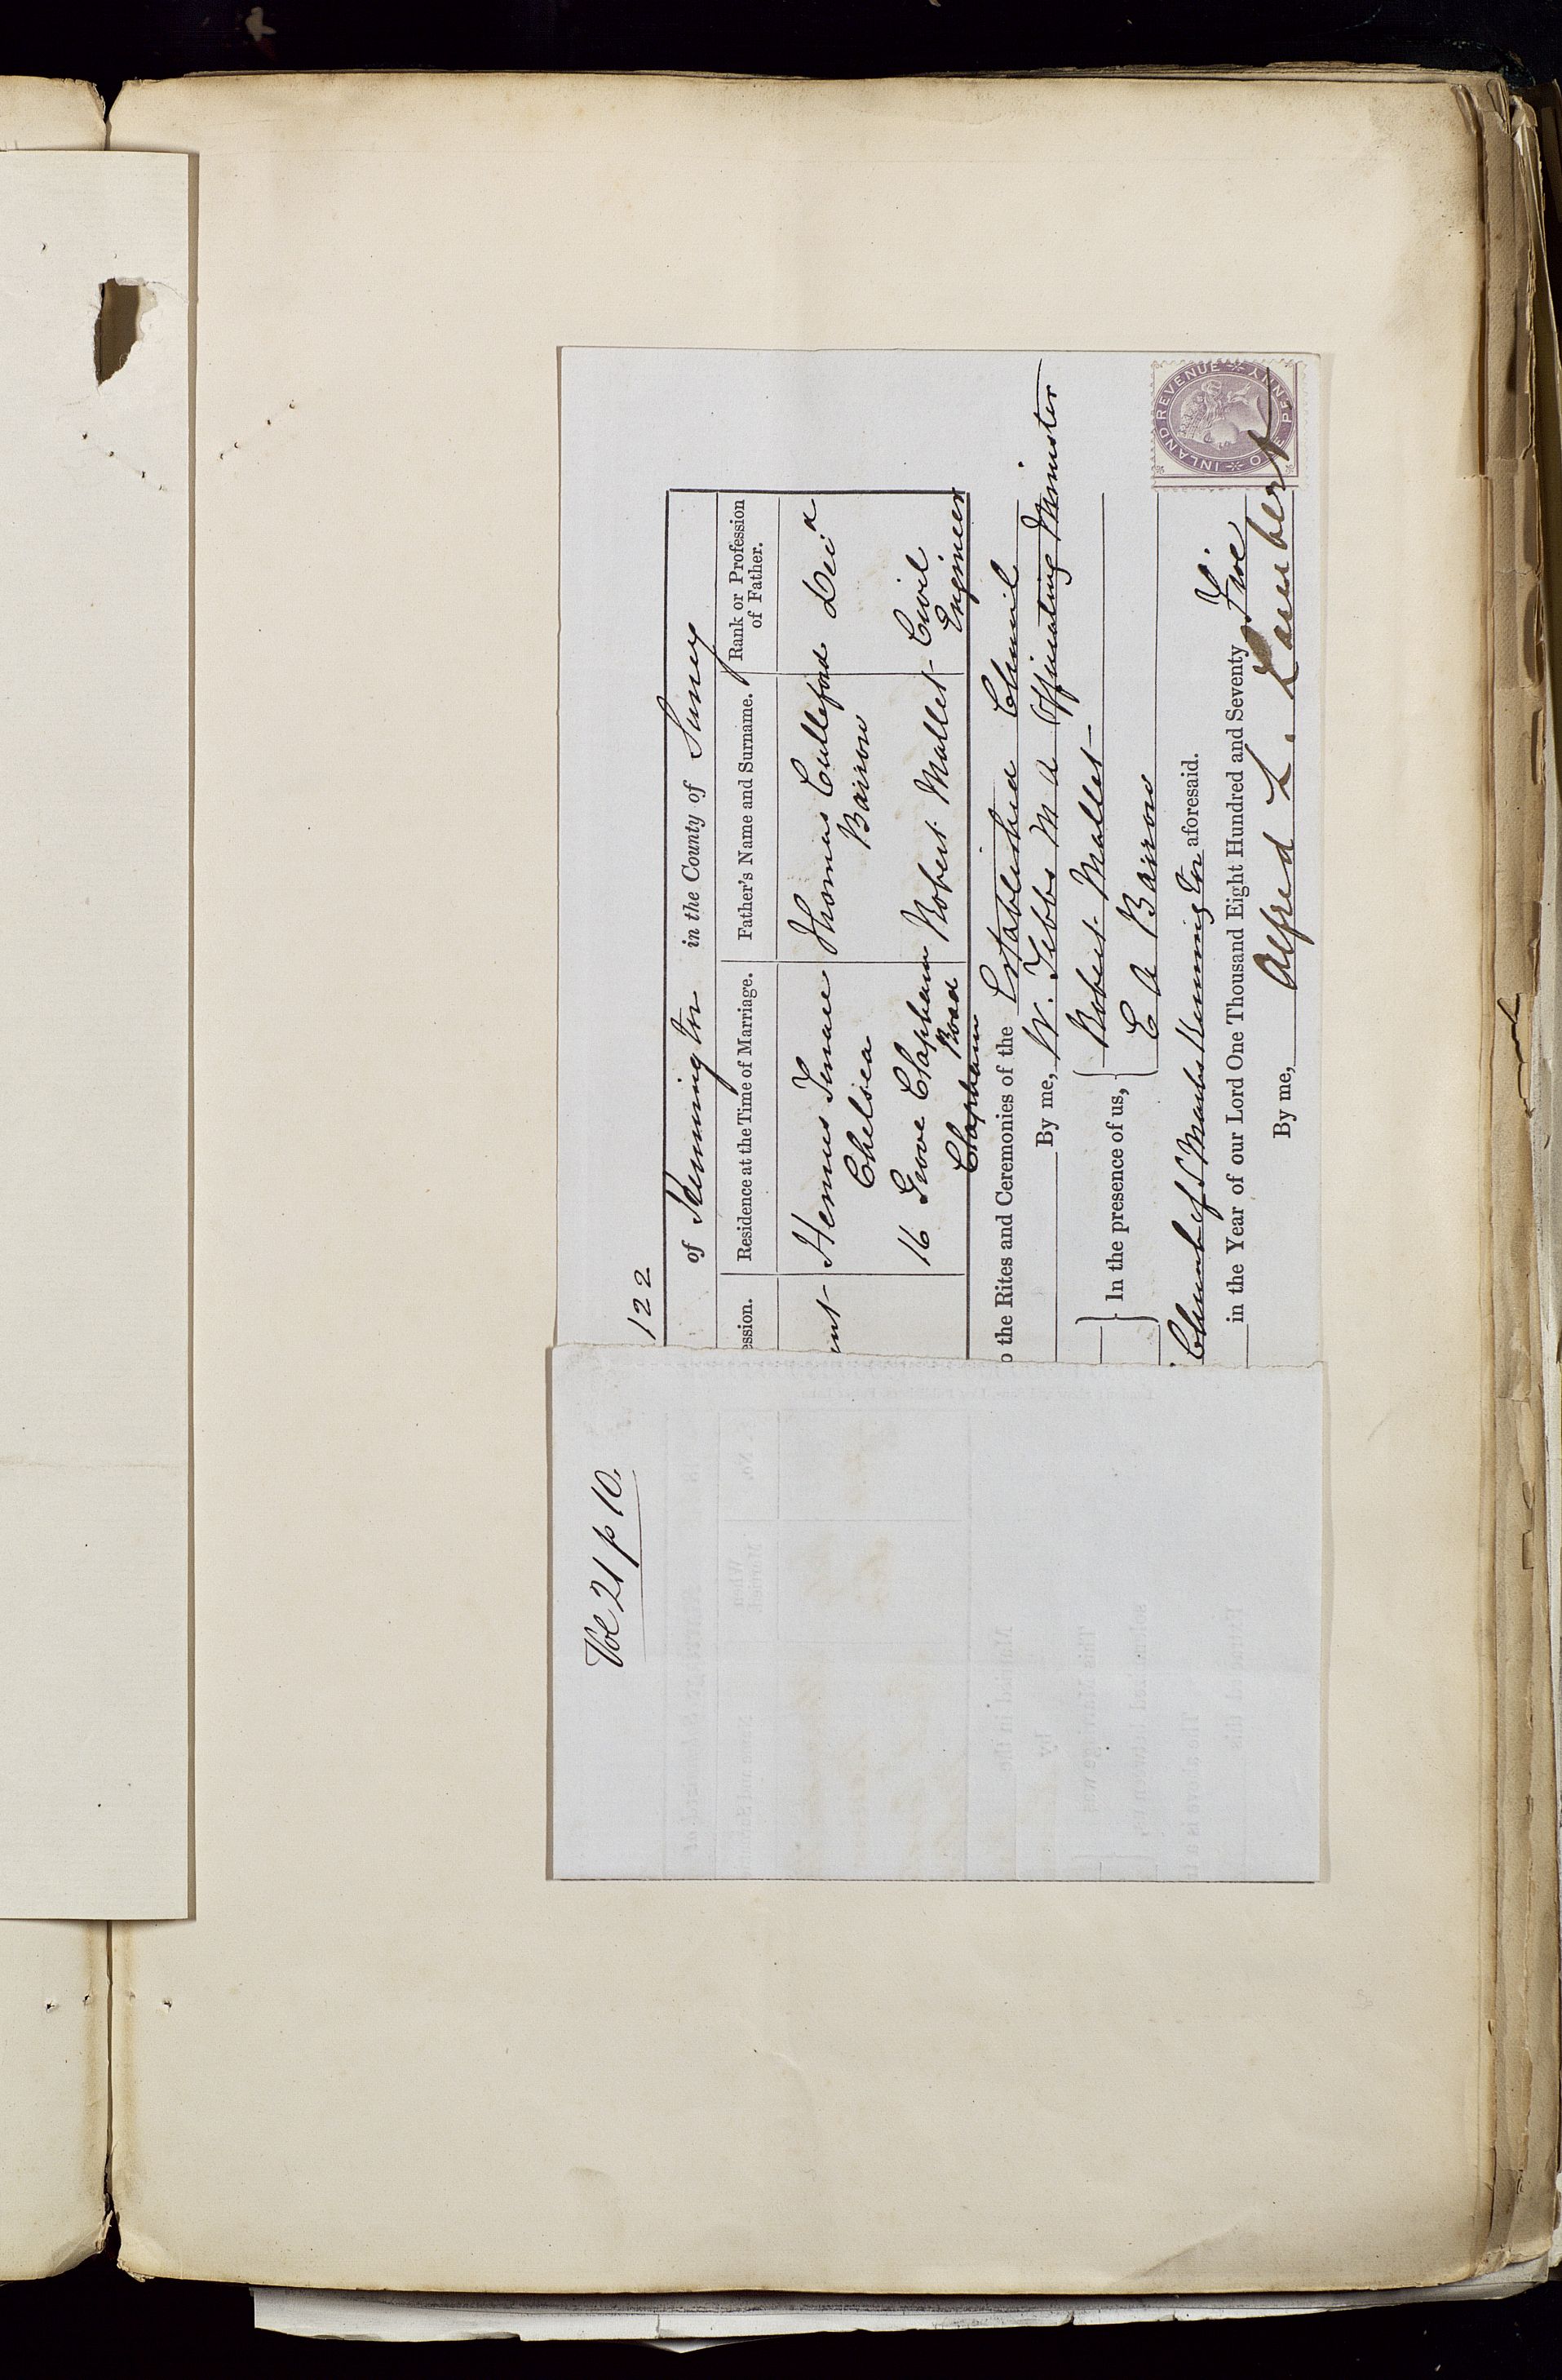 Vol 21 p 10.
122
of Kennington in the County of Surrey
ession. Residence at the Time of Marriage. Father's Name and Surname. Rank or Profession
of Father.
ent Terrace Thomas Culleford Decd
Chelsea Barron
16 Grove Clapham Robert Mallet Civil
Road Engineer
Clapham
o the Rites and Ceremonies of the Established Church
By me, W. Tebbs M A Officiating Minister
In the presence of us, Robert Mallet
E A Barron
Church of St Marks Kennington aforesaid.
in the Year of our Lord One Thousand Eight Hundred and Seventy Five
By me, Alfred L. Lambert
INLAND REVENUE ONE PENNY